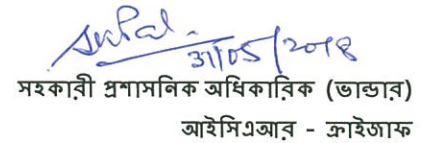 31/05/2018
সহকারী প্রশাসনিক অধিকারিক (ভান্ডার)
আইসিএআর - ক্রাইজাফ